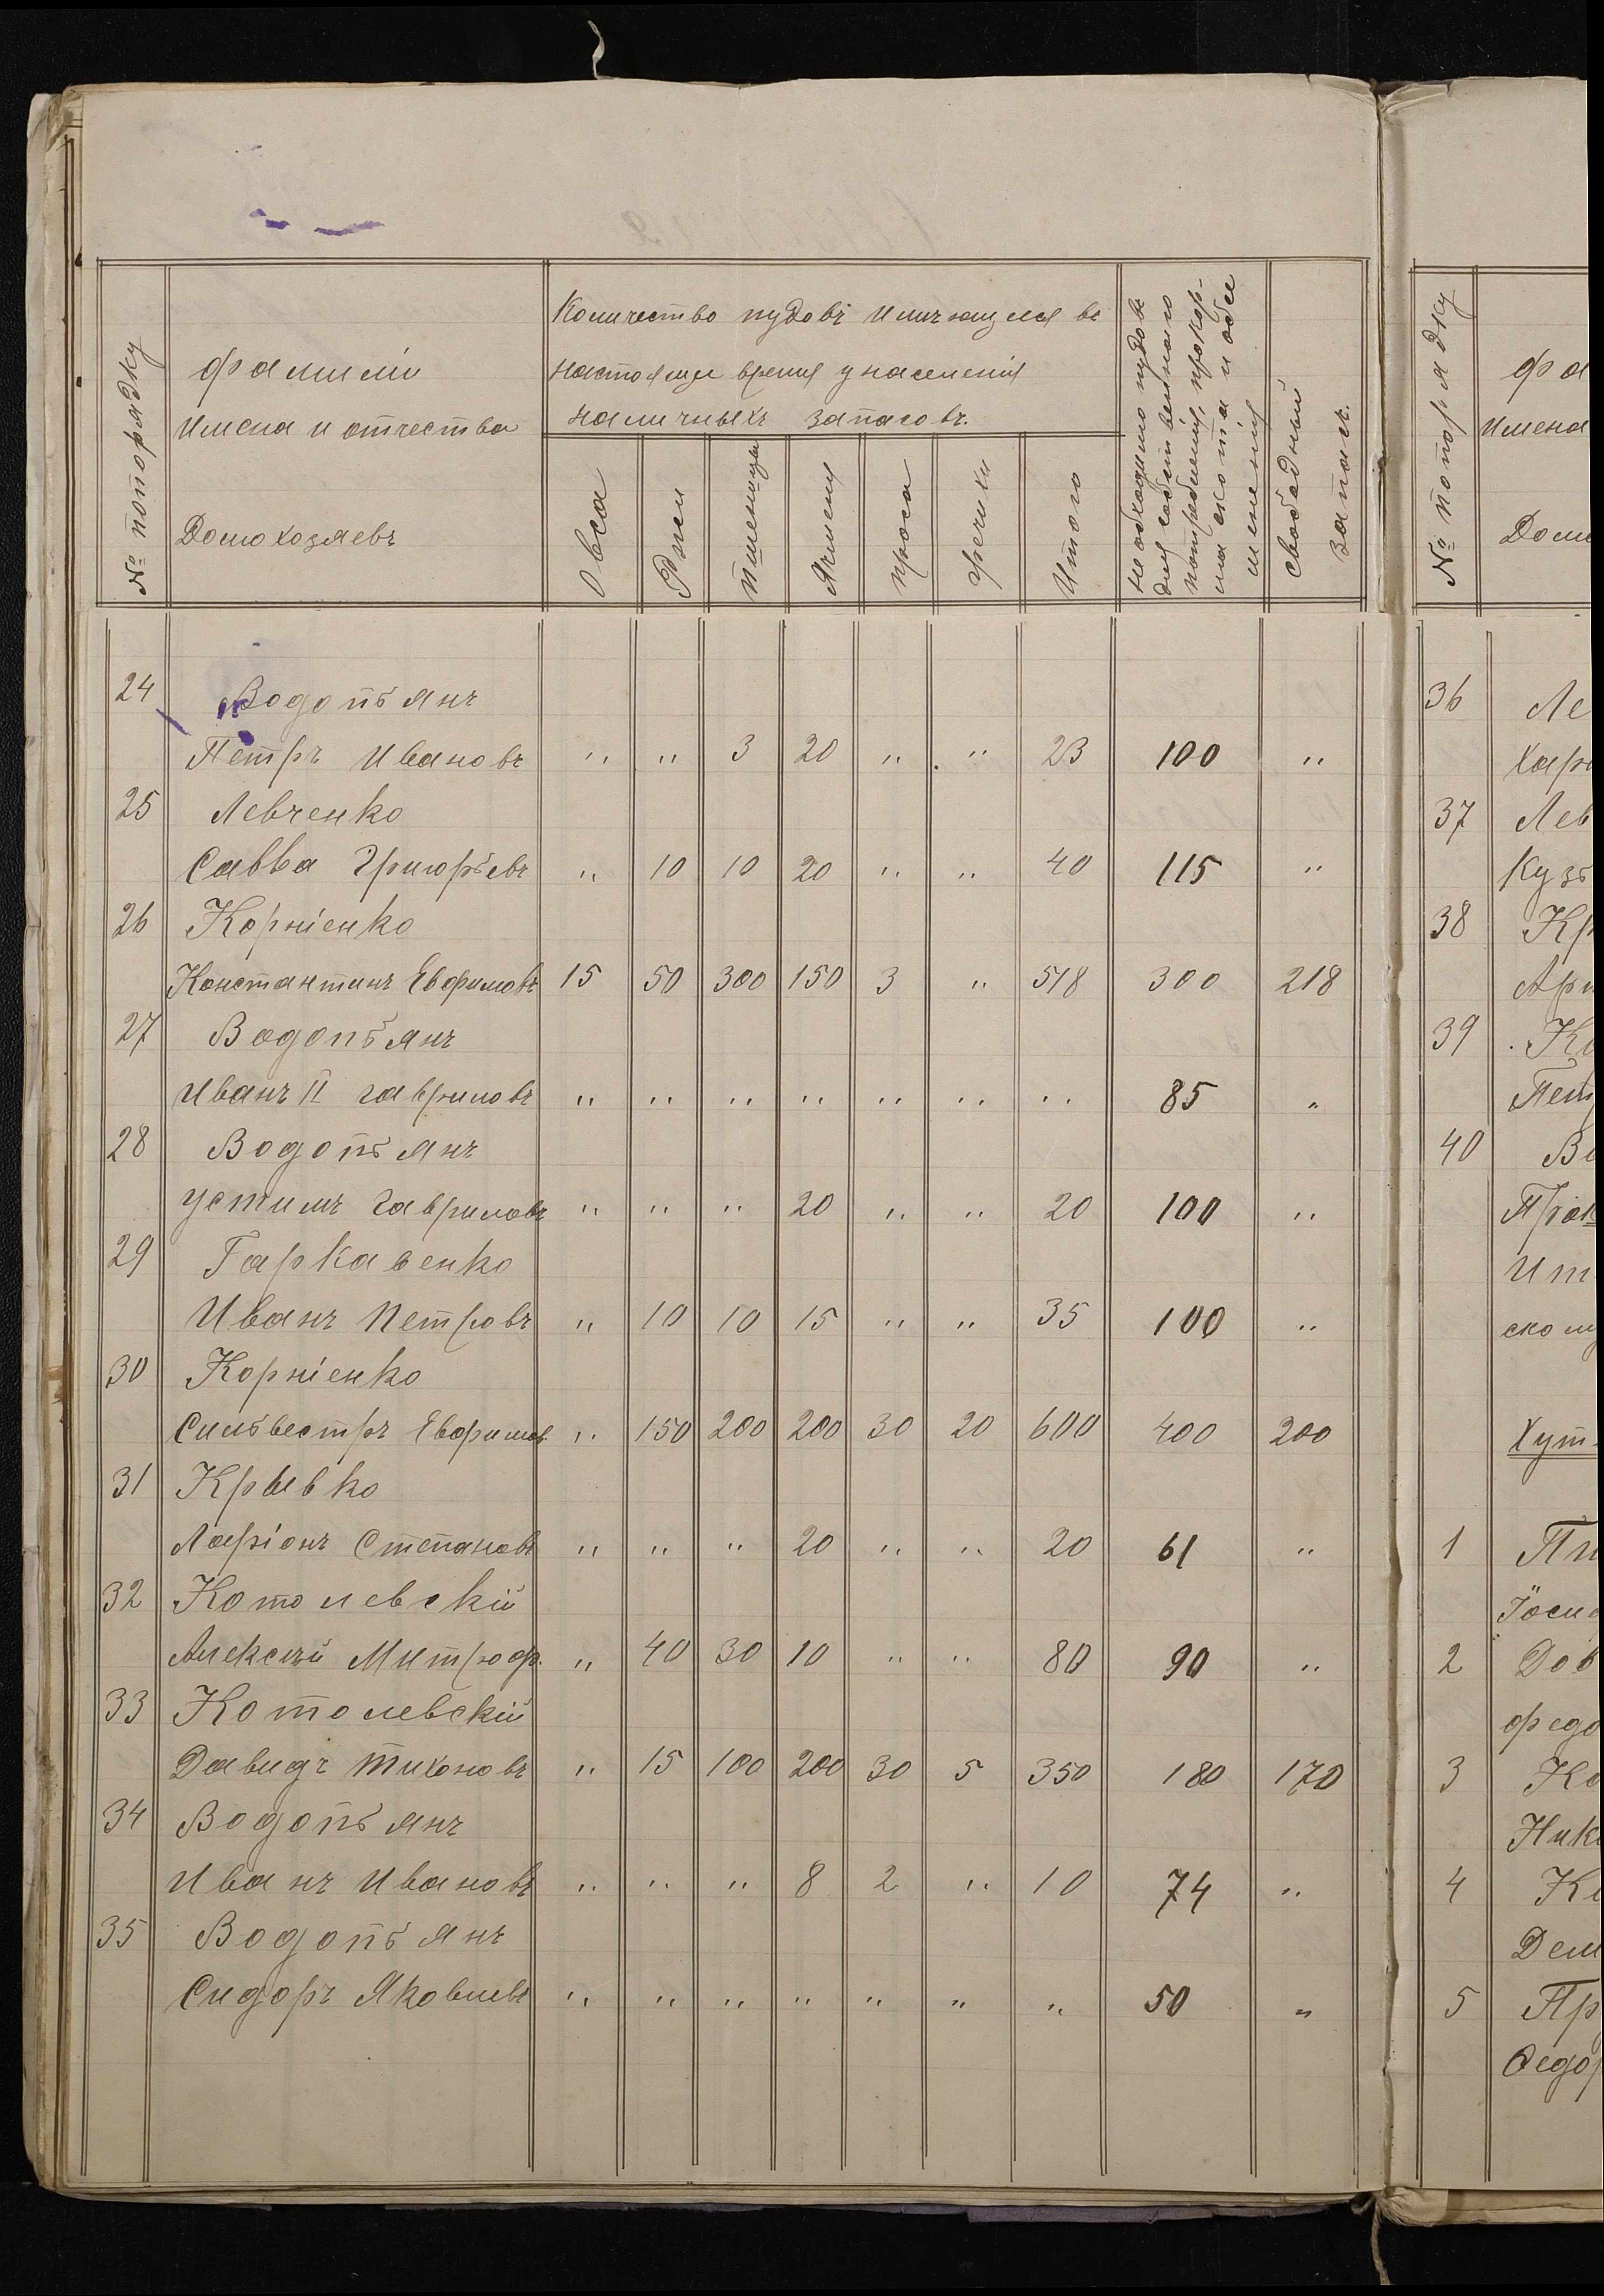 № по порядку
фамиліи
имена и отчества
Домохозяевъ
Количество пудовъ имѣющихся въ
настоящее время у населенія
наличныхъ запасовъ.
Овса
Ржи
Пшеницы
Ячменя
проса
гречихи
Итого
Необходимо пудовъ
для собственнаго
потребленія, прокор-
ма скота и обсе
мененія
Свободный
запасъ.
24 Водопьянъ
Петръ Ивановъ " " 3 20 " " 23 100 "
25 Левченко
Савва Григорьевъ " 10 10 20 " " 40 115 "
26 Корніенко
Константинъ Евфимовъ 15 50 300 150 3 " 518 300 218
27 Водопьянъ
Иванъ II Гавриловъ " " " " " " " 85 "
28 Водопьянъ
Устимъ Гавриловъ " " " 20 " " 20 100 "
29 Гаркавенко
Иванъ Петровъ " 10 10 15 " " 35 100 "
30 Корніенко
Сильвестръ Евфимов. " 150 200 200 30 20 600 400 200
31 Крывко
Ларіонъ Степановъ " " " 20 " " 20 61 "
32 Котолевскій
Алексѣй Митроф. " 40 30 10 " " 80 90 "
33 Котолевскій
Давидъ Тихоновъ " 15 100 200 30 5 350 180 170
34 Водопьянъ
Иванъ Ивановъ " " " 8 2 " 10 74 "
35 Водопьянъ
Сидоръ Яковлевъ " " " " " " " 50 "
№ по порядку
фа
имена
Домо
36 Ле
Хар
37 Лев
Кузь
38 Кр
Ари
39 Ко
Петр
40 Во
Прок
Ит
ском
Хут
1 Пи
Іоси
2 Дов
федо
3 Ко
Ник
4 Ко
Дем
5 Пр
Федор